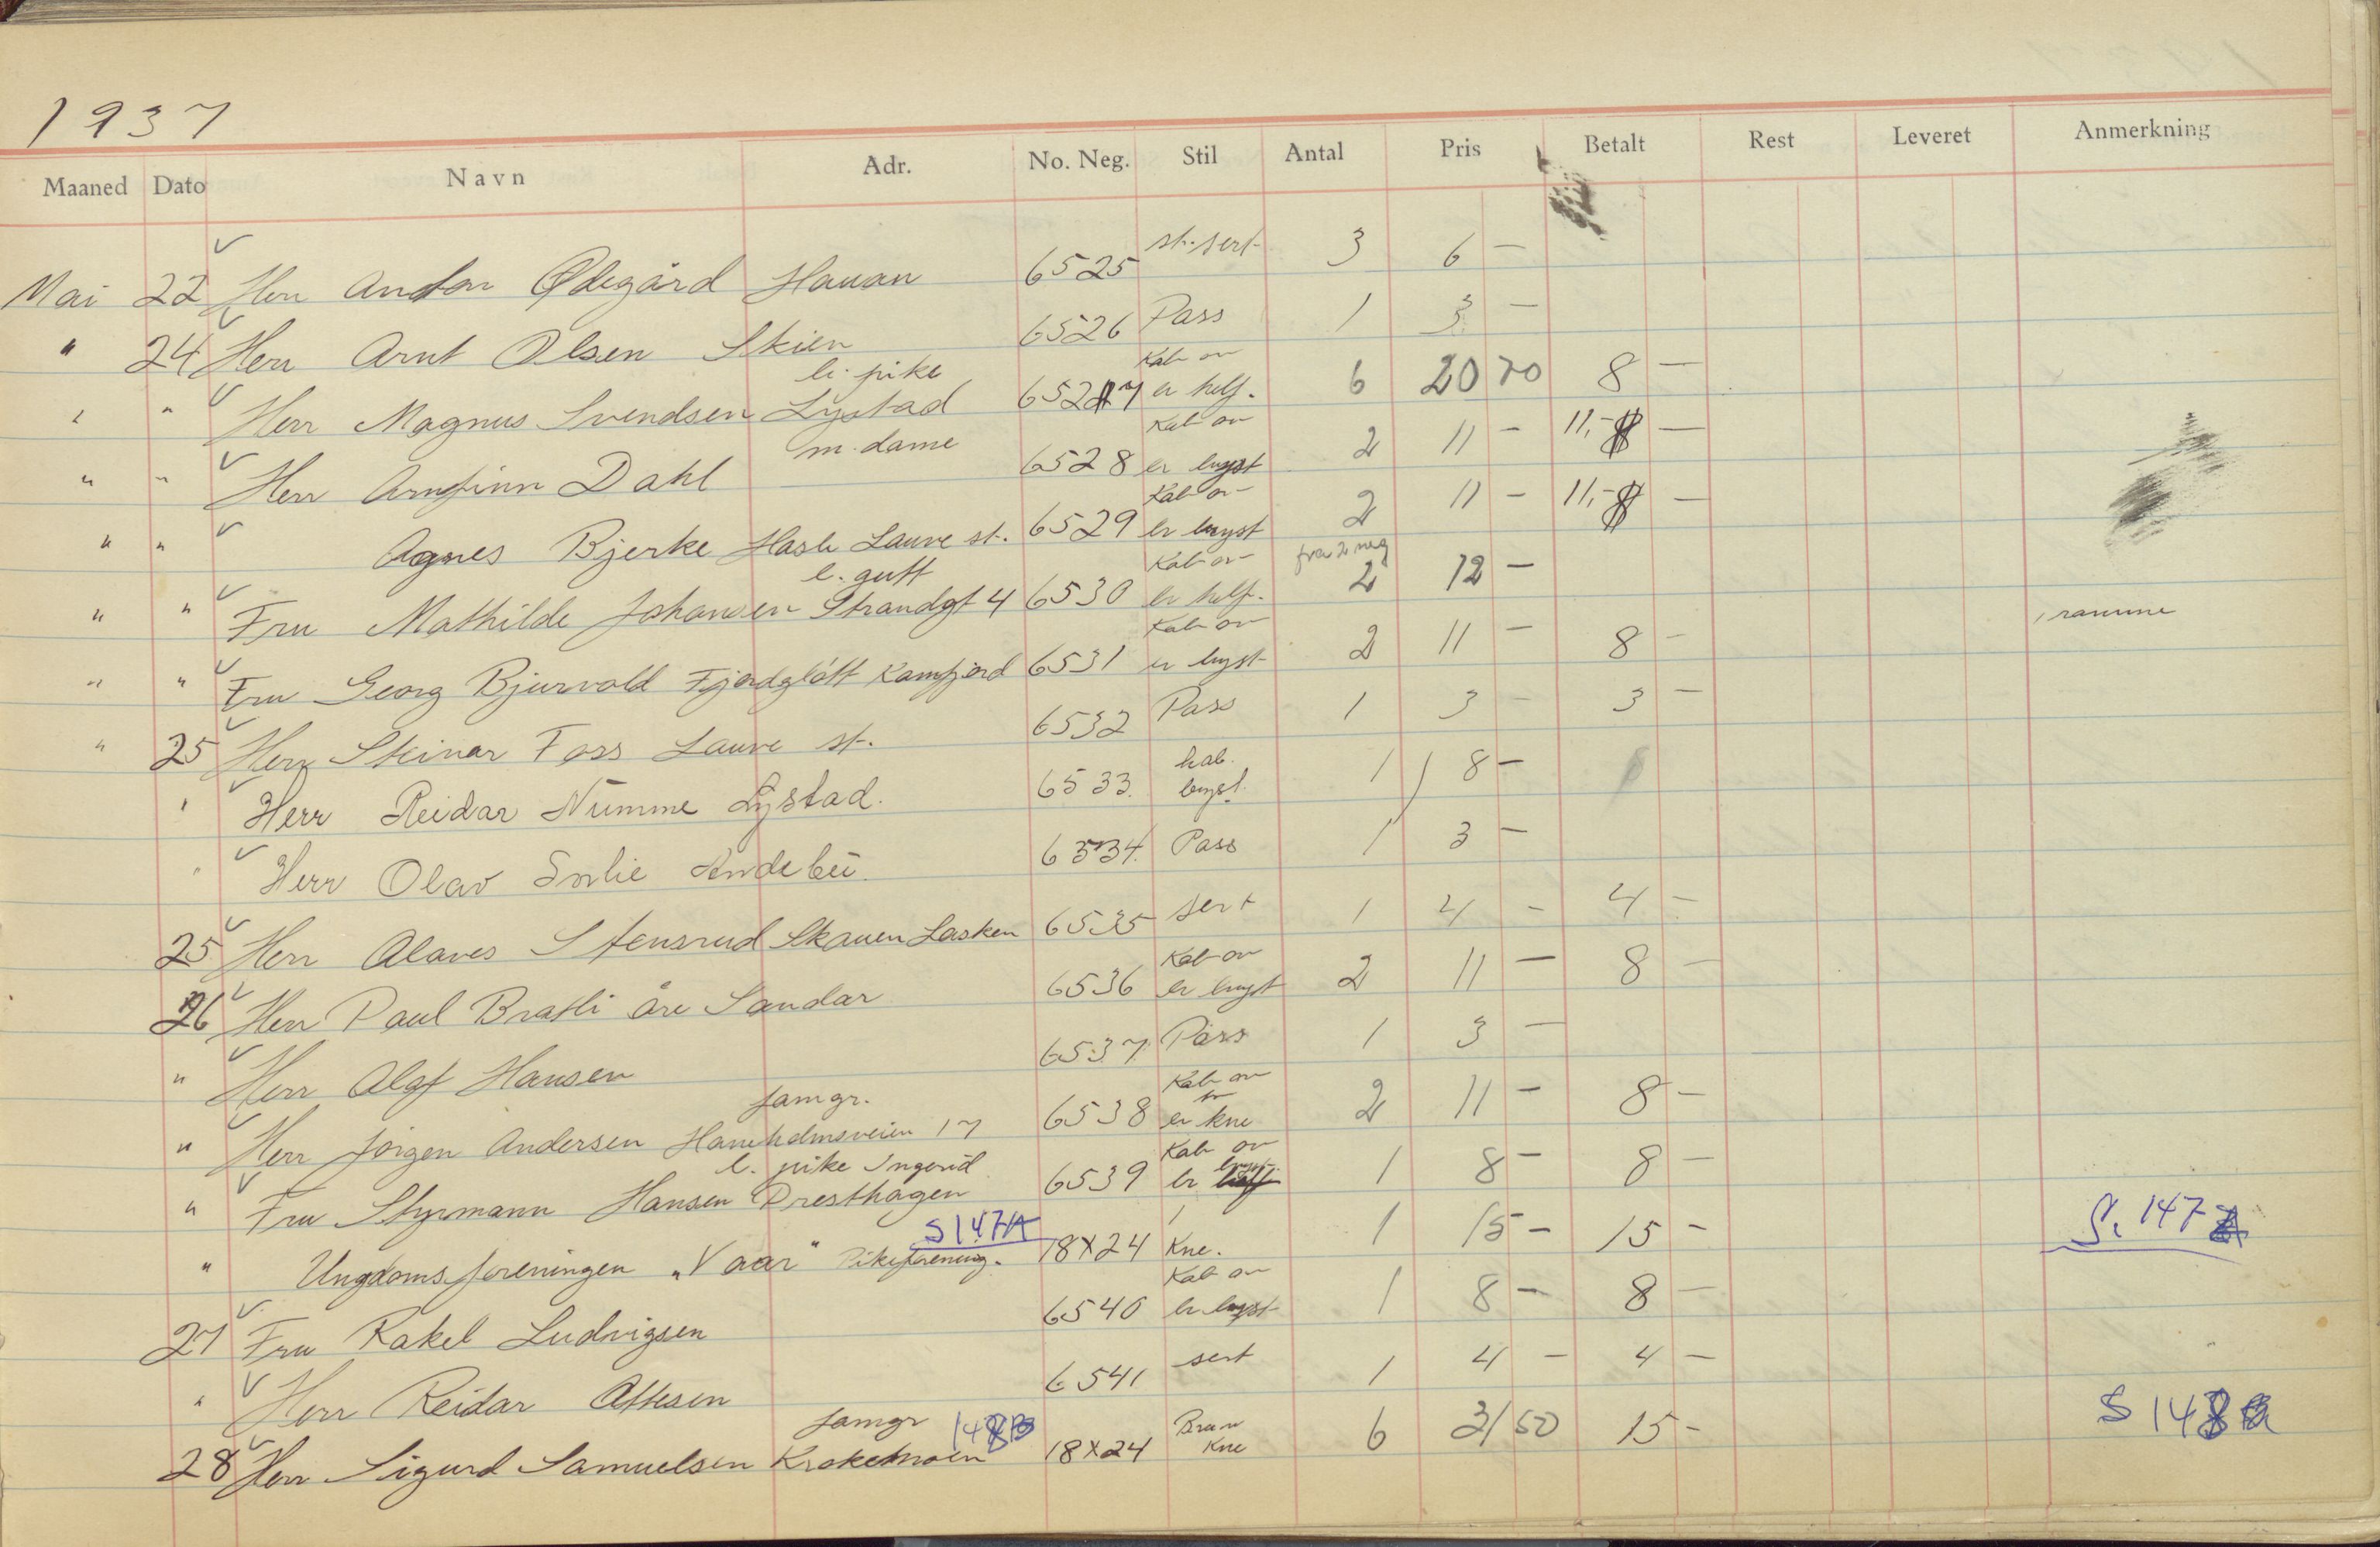 1937
Maaned Dato Navn Adr. No. Neg. Stil Antal Pris Betalt Rest Leveret Anmerkning
Mai 22 Herr Anton Ødegård Hauan 6525 st. sert 3 6 –
" 24 Herr Arnt Olsen Skien 6526 Pass 1 3 –
l. pike Kab on
" " Herr Magnus Svendsen Lystad 6527 er helf. 6 20 70 8 –
m. dame Kab on
" " Herr Arnfinn Dahl 6528 er bryst 2 11 – 11,- –
Kab on
" " Agnes Bjerke Hasle Lauve st. 6529 er bryst 2 11 – 11,- –
l. gutt Kab on fra 2 neg
" " Fru Mathilde Johansen Strandgt 4 6530 er helf. 2 12 –
Kab on ramme
" " Fru Georg Bjurvold Fjordgløtt Kamfjord 6531 er bryst 2 11 – 8 –
" 25 Herr Steinar Foss Lauve st. 6532 Pass 1 3 – 3 –
kab.
" Herr Reidar Numme Lystad. 6533. bryst. 1 8 –
" Herr Olav Solie Andebu. 6534. Pass 1 3 –
25 Herr Olaves Stensrud Skauen Lasken 6535 sert 1 4 – 4 –
Kab on
26 Herr Paul Bratli Åre Sandar 6536 er bryst 2 11 – 8 –
" Herr Olaf Hansen 6537 Pass 1 3 –
famgr. Kab on
" Herr Jørgen Andersen Haneholmsveien 17 6538 er kne 2 11 – 8 –
l. pike Ingerid Kab on
" Fru Styrmann Hansen Presthagen 6539 er bryst 1 8 – 8 –
S 147A S. 147
" Ungdomsforeningen „Vaar" Pikeforening. 18X24 Kne. 1 15 – 15 –
Kab on
27 Fru Rakel Ludvigsen 6540 er bryst 1 8 – 8 –
" Herr Reidar Ottesen 6541 sert 1 4 – 4 –
famgr 148B Brun S 148
28 Herr Sigurd Samuelsen Krokemoen 18X24 Kne 6 3/50 15 –